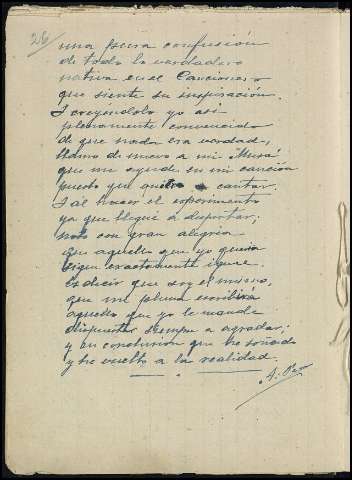 26
una pura confusión
de todo lo verdadero
nativa en el Cancionero
que siente su inspiración.
I creyéndolo yo asi
plenamente convencido
de que nada era verdad,
llamo de nuevo a mi Musa
que me ayude en mi canción
puesto que quiero cantar.
I al hacer el esperimento
ya que llegué a dispertar;
noto con gran alegria
que aquello que yo queria
sigue exactamente igual.
Es decir que soy el mismo,
que mi pluma escribirá
aquello que yo le mande
dispuesta siempre a agradar;
y en conclusión que he soñado
y he vuelto a la realidad.
A.